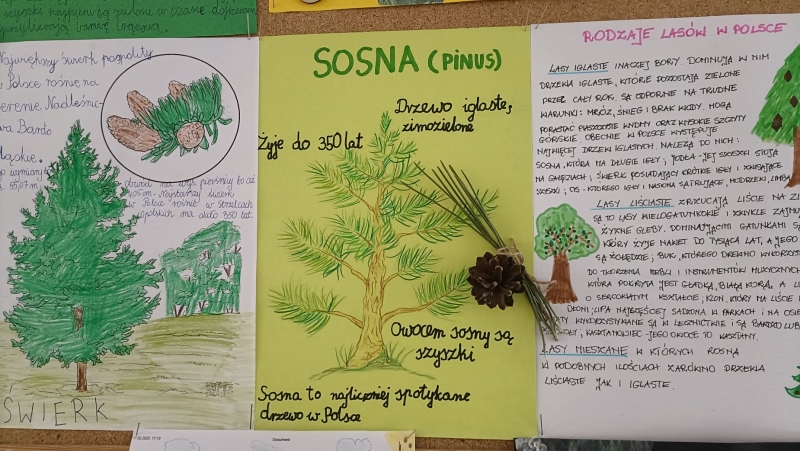 szyszki najpierw są zielone w czasie dojrzewan
przybierają barwę brązową.
Największy świerk pospolity
w Polsce rośnie na
terenie Nadleśni-
wa Bardo
Śląskie.
wymiary
w Polsce rośnie w
opolskich ma około 350 lat.
ŚWIERK
SOSNA (PINUS)
Drzewo iglaste,
zimozielone
Żyje do 350 lat
Owocem sosny są
szyszki
Sosna to najliczniej spotykane
drzewo w Polsce
RODZAJE LASÓW W POLSCE
LASY IGLASTE INACZEJ BORY. DOMINUJĄ W NIM
DRZEWA IGLASTE, KTÓRE POZOSTAJĄ ZIELONE
PRZEZ CAŁY ROK. SĄ ODPORNE NA TRUDNE
WARUNKI: MRÓZ, ŚNIEG I BRAK WODY. MOGĄ
PORASTAĆ PIASZCZYSTE WYDMY ORAZ WYSOKIE SZCZYTY
GÓRSKIE. OBECNIE W POLSCE WYSTĘPUJE
NAJWIĘCEJ DRZEW IGLASTYCH. NALEŻĄ DO NICH:
SOSNA, KTÓRA MA DŁUGIE IGŁY; JODŁA - JEJ SZYSZKI STOJĄ
NA GAŁĘZIACH; ŚWIERK POSIADAJĄCY KRÓTKIE IGŁY I ZWISAJĄCE
SZYSZKI; CIS - KTÓREGO IGŁY I NASIONA SĄ TRUJĄCE, MODRZEW, LIMBA
LASY LIŚCIASTE ZRZUCAJĄ LIŚCIE NA ZI
SĄ TO LASY WIELOGATUNKOWE I ZWYKLE ZAJMU
ŻYZNE GLEBY. DOMINUJĄCYMI GATUNKAMI SĄ
KTÓRY ŻYJE NAWET DO TYSIĄCA LAT, A JEGO
SĄ ŻOŁĘDZIE; BUK, KTÓREGO DREWNO WYKORZYST
DO TWORZENIA MEBLI I INSTRUMENTÓW MUZYCZNYCH
KTÓRA POKRYTA JEST GŁADKĄ, BIAŁĄ KORĄ, A L
O SERCOWATYM KSZTAŁCIE; KLON, KTÓRY MA LIŚCIE
DŁONI; LIPA NAJCZĘŚCIEJ SADZONA W PARKACH I NA OSIE
WYKORZYSTYWANE SĄ W LECZNICTWIE I SĄ BARDZO LUB
KASZTANOWIEC - JEGO OWOCE TO KASZTANY.
LASY MIESZANE W KTÓRYCH ROSNĄ
W PODOBNYCH ILOŚCIACH ZARÓWNO DRZEWA
LIŚCIASTE JAK I IGLASTE.